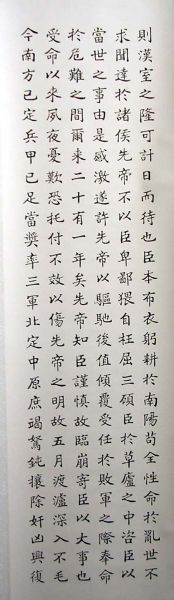 則漢室之隆可計日而待也臣本布衣躬耕於南陽苟全性命於亂世不
求聞達於諸侯先帝不以臣卑鄙猥自枉屈三顧臣於草廬之中咨臣以
當世之事由是感激遂許先帝以驅馳後值傾覆受任於敗軍之際奉命
於危難之間爾來二十有一年矣先帝知臣謹慎故臨崩寄臣以大事也
受命以來夙夜憂歎恐托付不效以傷先帝之明故五月渡瀘深入不毛
今南方已定兵甲已足當獎率三軍北定中原庶竭駑鈍攘除奸凶興復